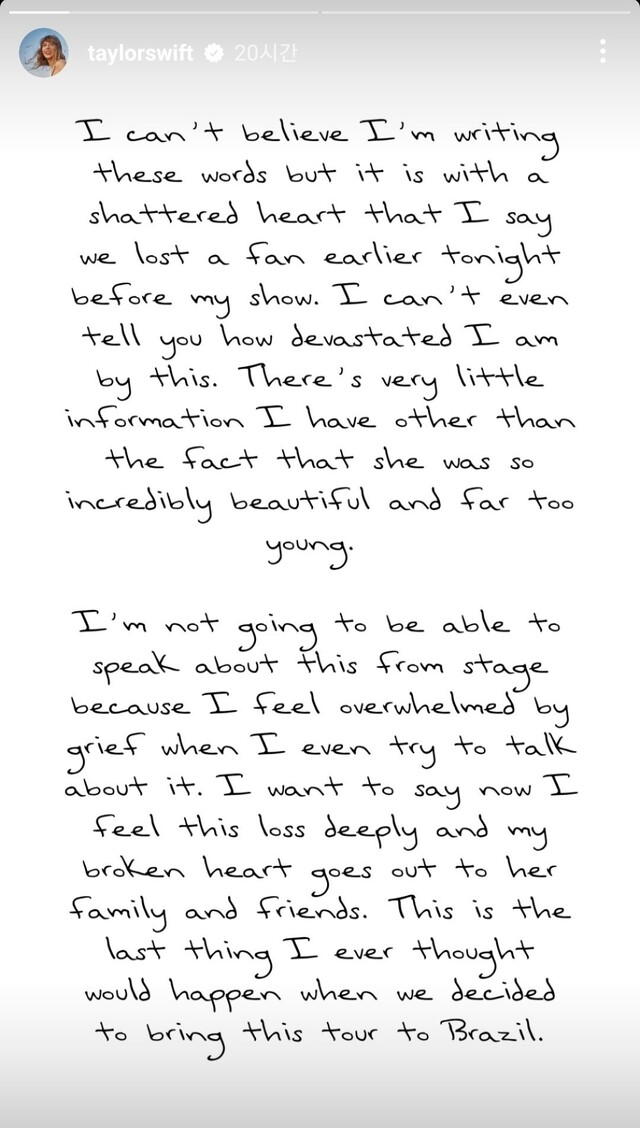 taylorswift 20시간
I can't believe I'm writing
these words but it is with a
shattered heart that I say
we lost a fan earlier tonight
before my show. I can't even
tell you how devastated I am
by this. There's very little
information I have other than
the fact that she was so
incredibly beautiful and far too
young.
I'm not going to be able to
speak about this from stage
because I feel overwhelmed by
grief when I even try to talk
about it. I want to say now I
feel this loss deeply and my
broken heart goes out to her
family and friends. This is the
last thing I ever thought
would happen when we decided
to bring this tour to Brazil.